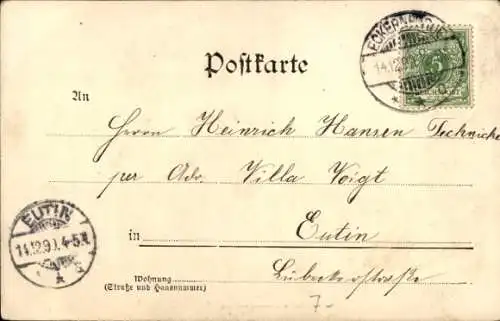 ECKERNFÖRDE
14.12.99
5
Postkarte
An
Herrn Heinrich Hansen Techniker
per Adr. Villa Voigt
in Eutin
Lübeckerstraße
Wohnung
(Straße und Hausnummer)
EUTIN
14.12.99. 4-5 N
7-